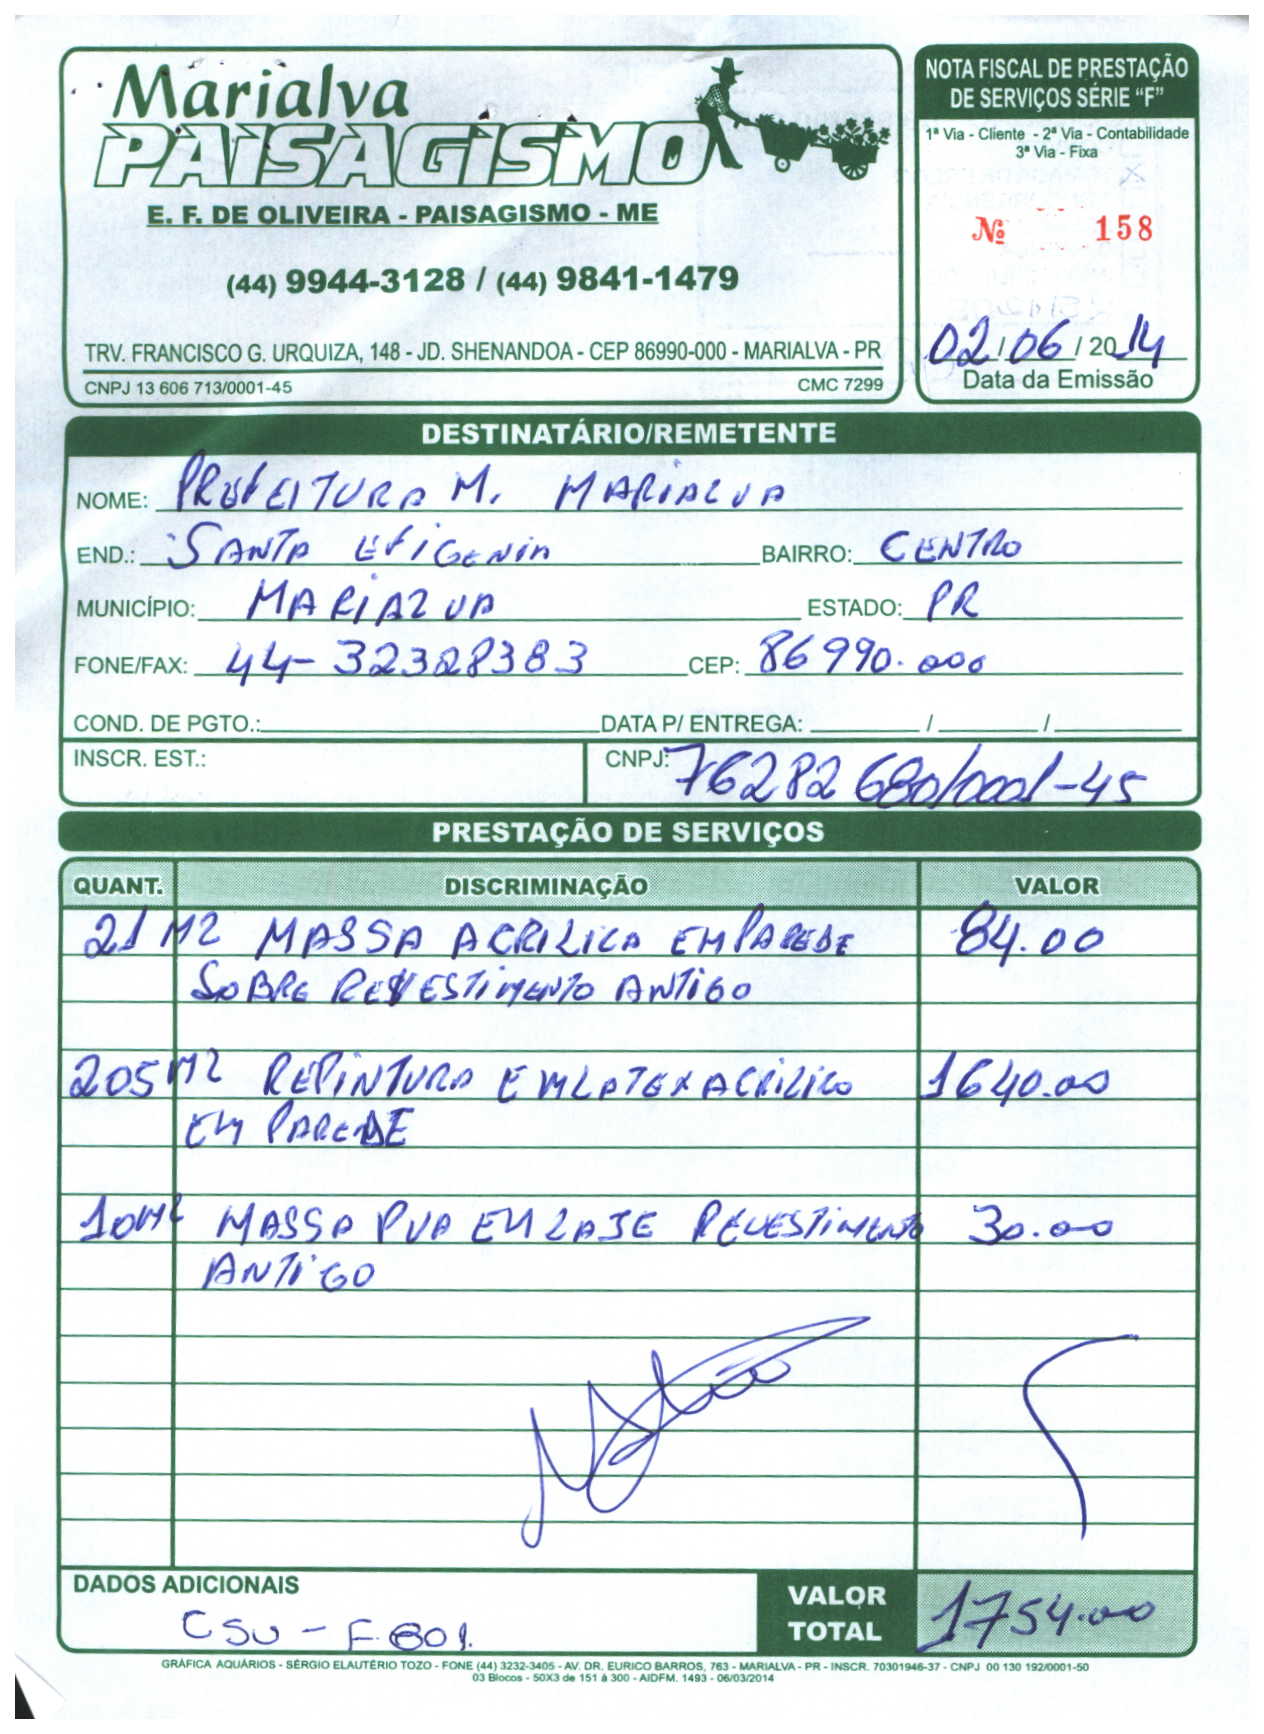 Marialva
PAISAGISMO
E. F. DE OLIVEIRA - PAISAGISMO - ME
(44) 9944-3128 / (44) 9841-1479
TRV. FRANCISCO G. URQUIZA, 148 - JD. SHENANDOA - CEP 86990-000 - MARIALVA - PR
CNPJ 13 606 713/0001-45 CMC 7299
NOTA FISCAL DE PRESTAÇÃO
DE SERVIÇOS SÉRIE “F”
1ª Via - Cliente - 2ª Via - Contabilidade
3ª Via - Fixa
Nº 158
02/06/2014
Data da Emissão
DESTINATÁRIO/REMETENTE
NOME: PREFEITURA M. MARIALVA
END.: SANTA EFIGENIA BAIRRO: CENTRO
MUNICÍPIO: MARIALVA ESTADO: PR
FONE/FAX: 44-32328383 CEP: 86990.000
COND. DE PGTO.: DATA P/ ENTREGA: / /
INSCR. EST.: CNPJ: 76282680/0001-45
PRESTAÇÃO DE SERVIÇOS
QUANT. DISCRIMINAÇÃO VALOR
21 M2 MASSA ACRILICA EM PAREDE 84.00
SOBRE REVESTIMENTO ANTIGO
205 M2 REPINTURA EM LATEX ACRILICO 1640.00
EM PAREDE
10 M2 MASSA PVA EM LAJE REVESTIMENTO 30.00
ANTIGO
DADOS ADICIONAIS
CSU - F. 801.
VALOR
TOTAL 1754.00
GRÁFICA AQUÁRIOS - SÉRGIO ELAUTÉRIO TOZO - FONE (44) 3232-3405 - AV. DR. EURICO BARROS, 763 - MARIALVA - PR - INSCR. 70301946-37 - CNPJ 00 130 192/0001-50
03 Blocos - 50X3 de 151 à 300 - AIDFM. 1493 - 06/03/2014